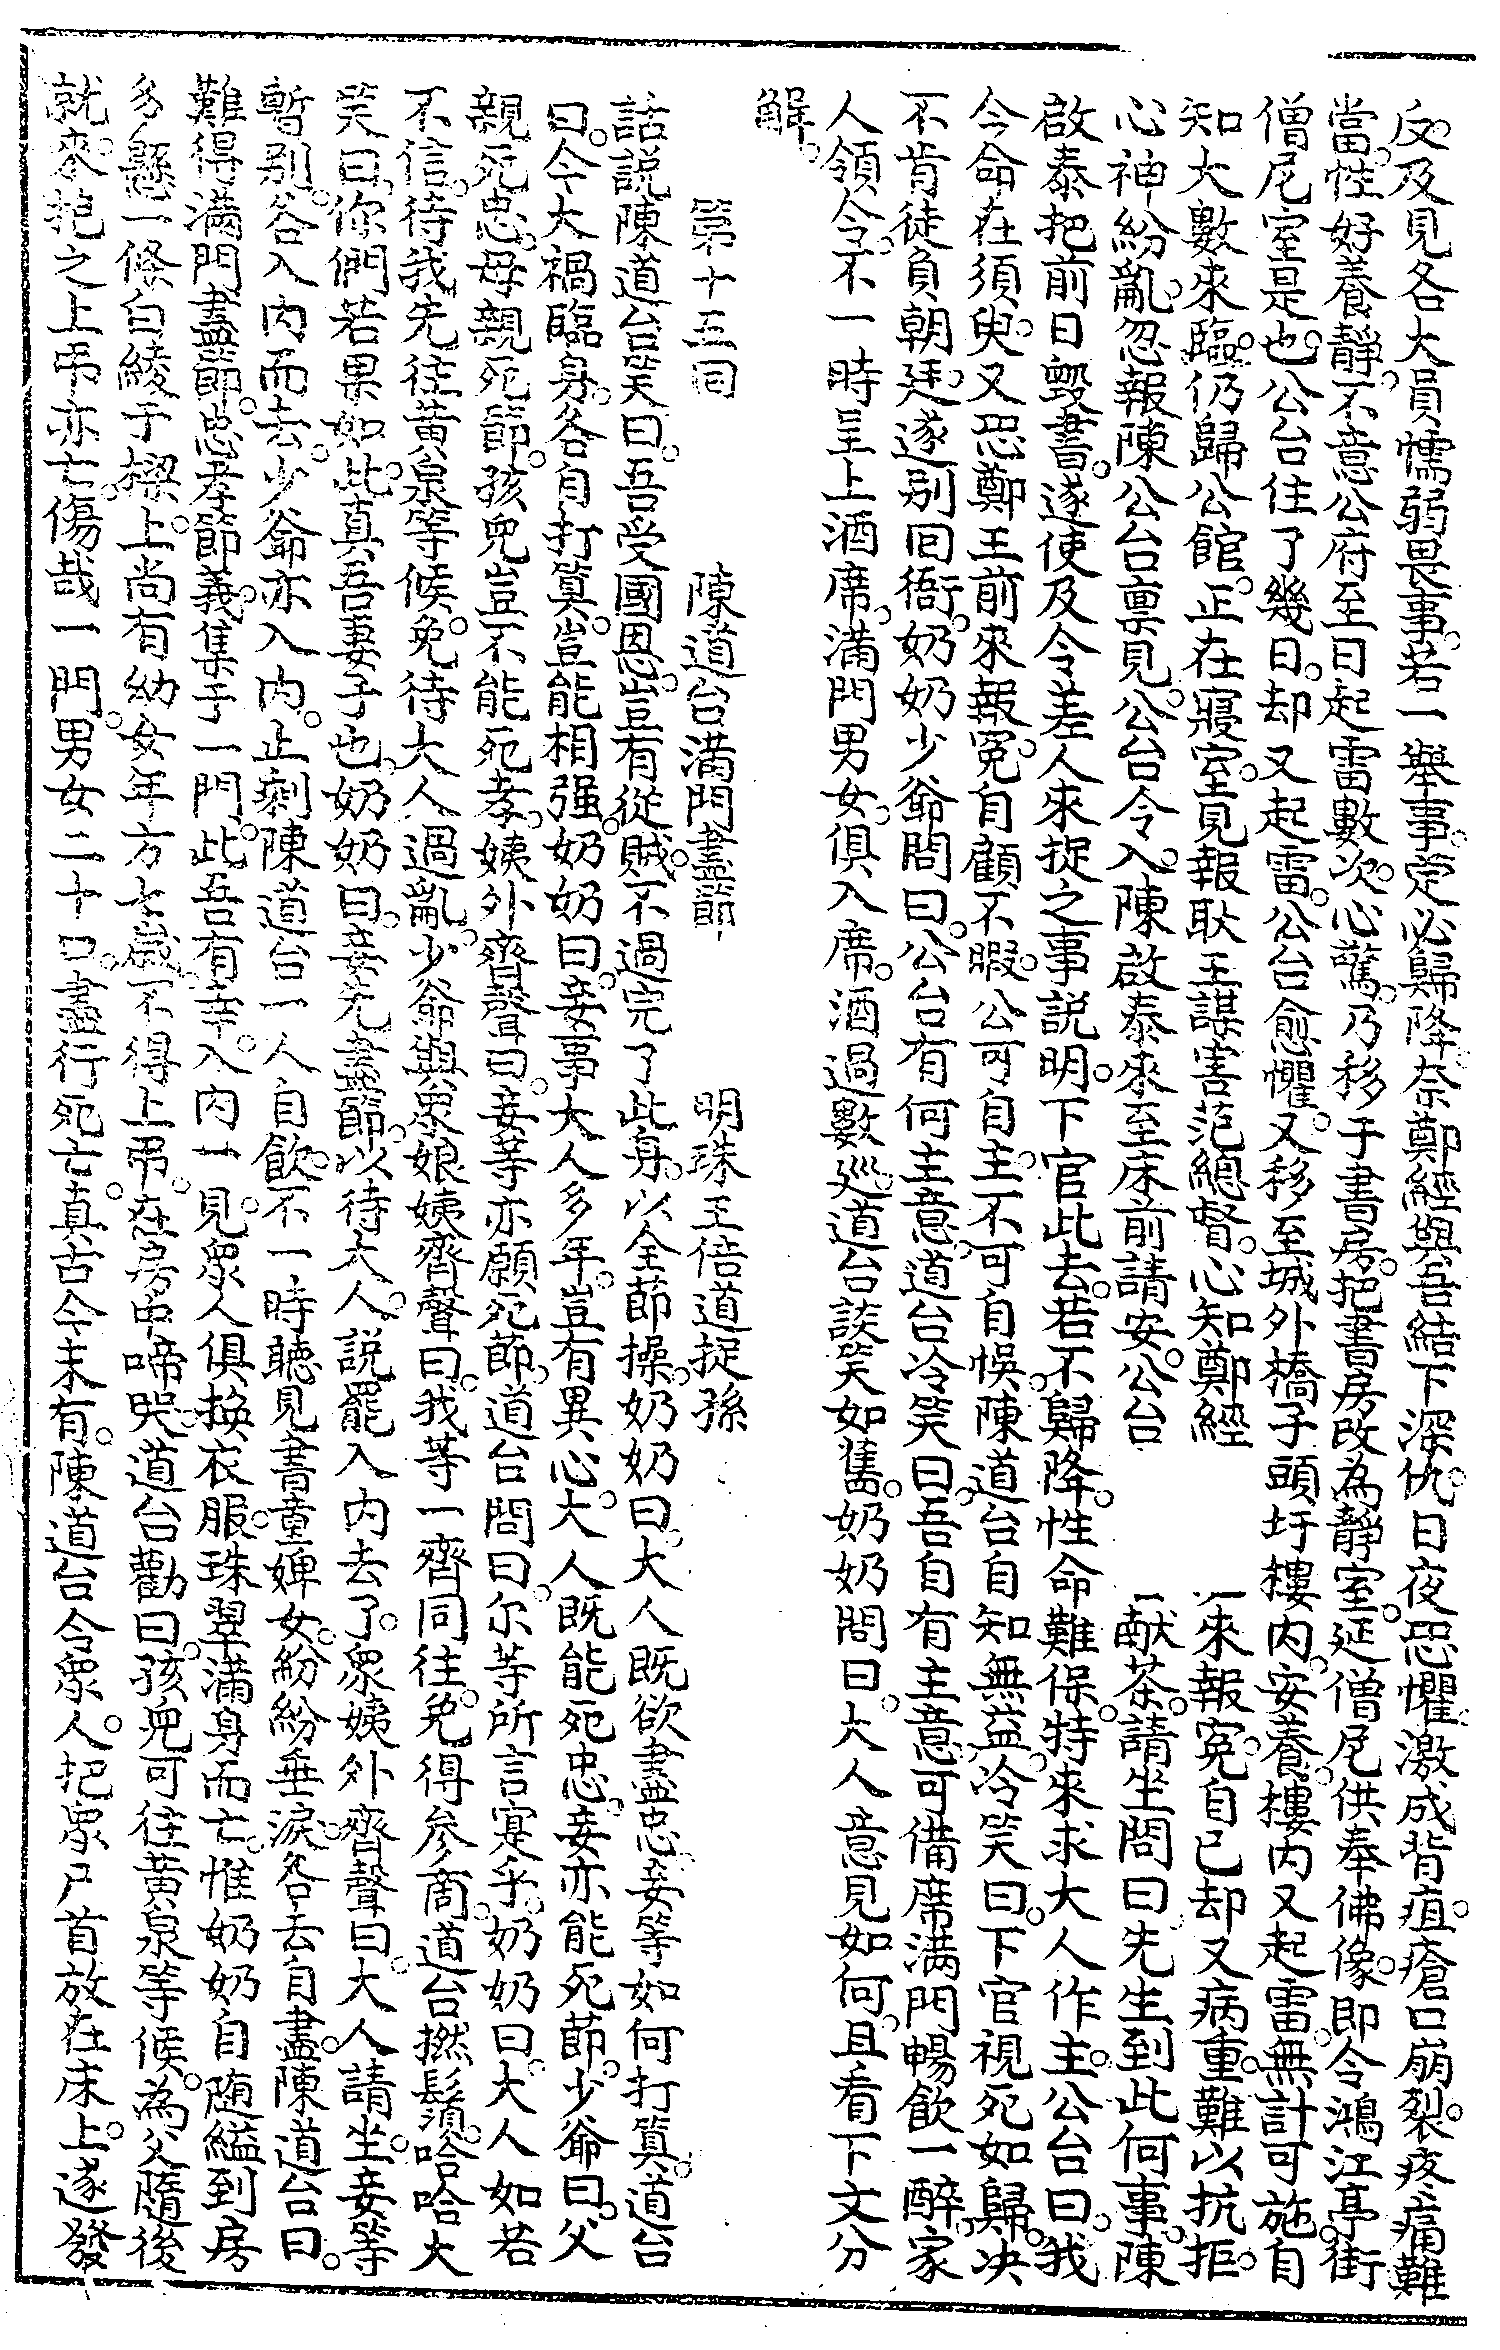 反。及見各大員懦弱畏事。若一舉事。定必歸降。奈鄭經與吾結下深仇。日夜恐懼。激成背疽。瘡口崩裂。疼痛難
當。性好養靜。不意公府至日起雷數次。心驚。乃移于書房。把書房改為靜室。延僧尼供奉佛像。即今鴻江亭街
僧尼室是也。公台住了幾日。却又起雷。公台愈懼。又移至城外橋子頭圩樓內。安養。樓內又起雷。無計可施。自
知大數來臨。仍歸公館。正在寢室。見報耿王謀害范總督。心知鄭經 來報冤。自已却又病重。難以抗拒。
心神紛亂。忽報陳公台禀見。公台令入。陳啟泰來至床前請安。公台 献茶。請坐。問曰先生到此何事。陳
啟泰把前日毀書。遂使及令差人來捉之事説明。下官此去。若不歸降。性命難保。特來求大人作主。公台曰。我
今命在須臾。又恐鄭王前來報冤。自顧不暇。公可自主。不可自悞。陳道台自知無益。冷笑曰。下官視死如歸。决
不肯徒負朝廷。遂别回衙。奶奶少爺問曰。公台有何主意。道台冷笑曰。吾自有主意。可備席滿門暢飲一醉。家
人領令。不一時呈上酒席。滿門男女。俱入席。酒過數廵。道台談笑如舊。奶奶問曰。大人意見如何。且看下文分
解。
第十三回 陳道台滿門盡節 明珠王倍道捉孫
話説陳道台笑曰。吾受國恩。豈有從賊。不過完了此身。以全節操。奶奶曰。大人既欲盡忠。妾等如何打算。道台
曰。今大禍臨身。各自打算。豈能相强。奶奶曰。妾事大人多年。豈有異心。大人既能死忠。妾亦能死節。少爺曰。父
親死忠。母親死節。孩兒豈不能死孝。姨外齊聲曰。妾等亦願死節。道台問曰。尔等所言寔乎。奶奶曰。大人如若
不信。待我先往黃泉等候。免待大人過亂。少爺與眾娘姨齊聲曰。我等一齊同往。免得參商。道台撚鬚。哈哈大
笑曰。你們若果如此。真吾妻子也。奶奶曰。妾先盡節。以待大人。説罷入內去了。眾姨外齊聲曰。大人請坐。妾等
暫別。各入內而去。少爺亦入內。止剩陳道台一人自飲。不一時聽見書童婢女。紛紛垂淚。各去自盡。陳道台曰。
難得滿門盡節。忠孝節義。集于一門。此吾有幸。入內一見。眾人俱換衣服。珠翠滿身而亡。惟奶奶自随縊到房
多懸一條白綾于樑。上尚有幼女年方七歲。不得上吊。在房中啼哭。道台勸曰。孩兒可往黃泉等候。為父隨後
就來。抱之上吊亦亡。傷哉一門。男女二十口。盡行死亡。真古今未有。陳道台令眾人。把眾尸首放在床上。遂發